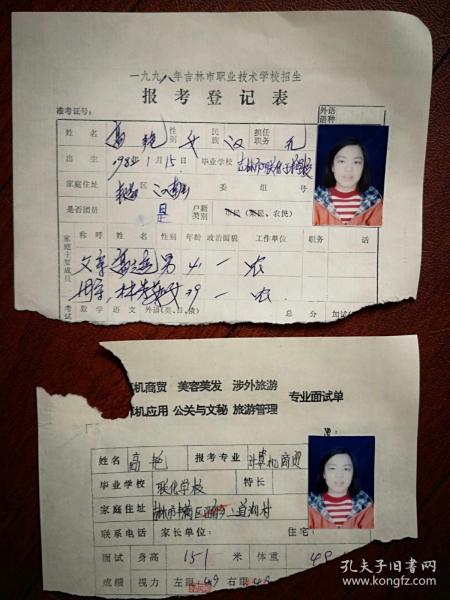 一九九八年吉林市职业技术学校招生
报考登记表
准考证号：
外语
语种
姓名 高艳 性别 女 民族 汉 担任职务 无
出生 1982.1.15 毕业学校
家庭住址 区 委 组 号
是否团员 是 户籍类别 市民（菜民、农民）
家庭主要成员
称呼 姓名 性别 年龄 政治面貌 工作单位 职务 话
父亲 男 41 一 农
母亲 林 39 一 农
考试 数学 语文 外语(英、日、俄) 总分 加试
机商贸 美容美发 涉外旅游
机应用 公关与文秘 旅游管理
专业面试单
姓名 高艳 报考专业 计算机商贸
毕业学校 联化学校 特长
家庭住址 吉林市丰满区
联系电话 家长单位： 住宅：
面试 身高 151 米 体重 48
成绩 视力 左眼 4.9 右眼 4.9
孔夫子旧书网